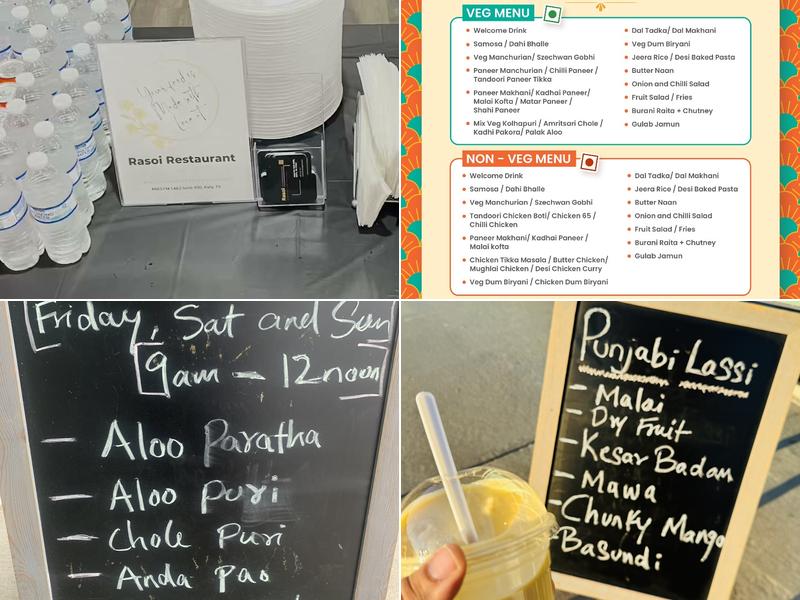 Rasoi Restaurant
VEG MENU
Welcome Drink
Samosa / Dahi Bhalle
Veg Manchurian/ Szechwan Gobhi
Paneer Manchurian / Chilli Paneer /
Tandoori Paneer Tikka
Paneer Makhani/ Kadhai Paneer/
Malai Kofta / Matar Paneer /
Shahi Paneer
Mix Veg Kolhapuri / Amritsari Chole /
Kadhi Pakora/ Palak Aloo
Dal Tadka/ Dal Makhani
Veg Dum Biryani
Jeera Rice / Desi Baked Pasta
Butter Naan
Onion and Chilli Salad
Fruit Salad / Fries
Burani Raita + Chutney
Gulab Jamun
NON - VEG MENU
Welcome Drink
Samosa / Dahi Bhalle
Veg Manchurian / Szechwan Gobhi
Tandoori Chicken Boti/ Chicken 65 /
Chilli Chicken
Paneer Makhani/ Kadhai Paneer /
Malai kofta
Chicken Tikka Masala / Butter Chicken/
Mughlai Chicken / Desi Chicken Curry
Veg Dum Biryani / Chicken Dum Biryani
Dal Tadka/ Dal Makhani
Jeera Rice / Desi Baked Pasta
Butter Naan
Onion and Chilli Salad
Fruit Salad / Fries
Burani Raita + Chutney
Gulab Jamun
[Friday, Sat and Sun
[9am - 12noon]
- Aloo Paratha
- Aloo puri
- Chole Puri
- Anda Pao
Punjabi Lassi
- Malai
- Dry Fruit
- Kesar Badam
- Mawa
- Chunky Mango
Basundi